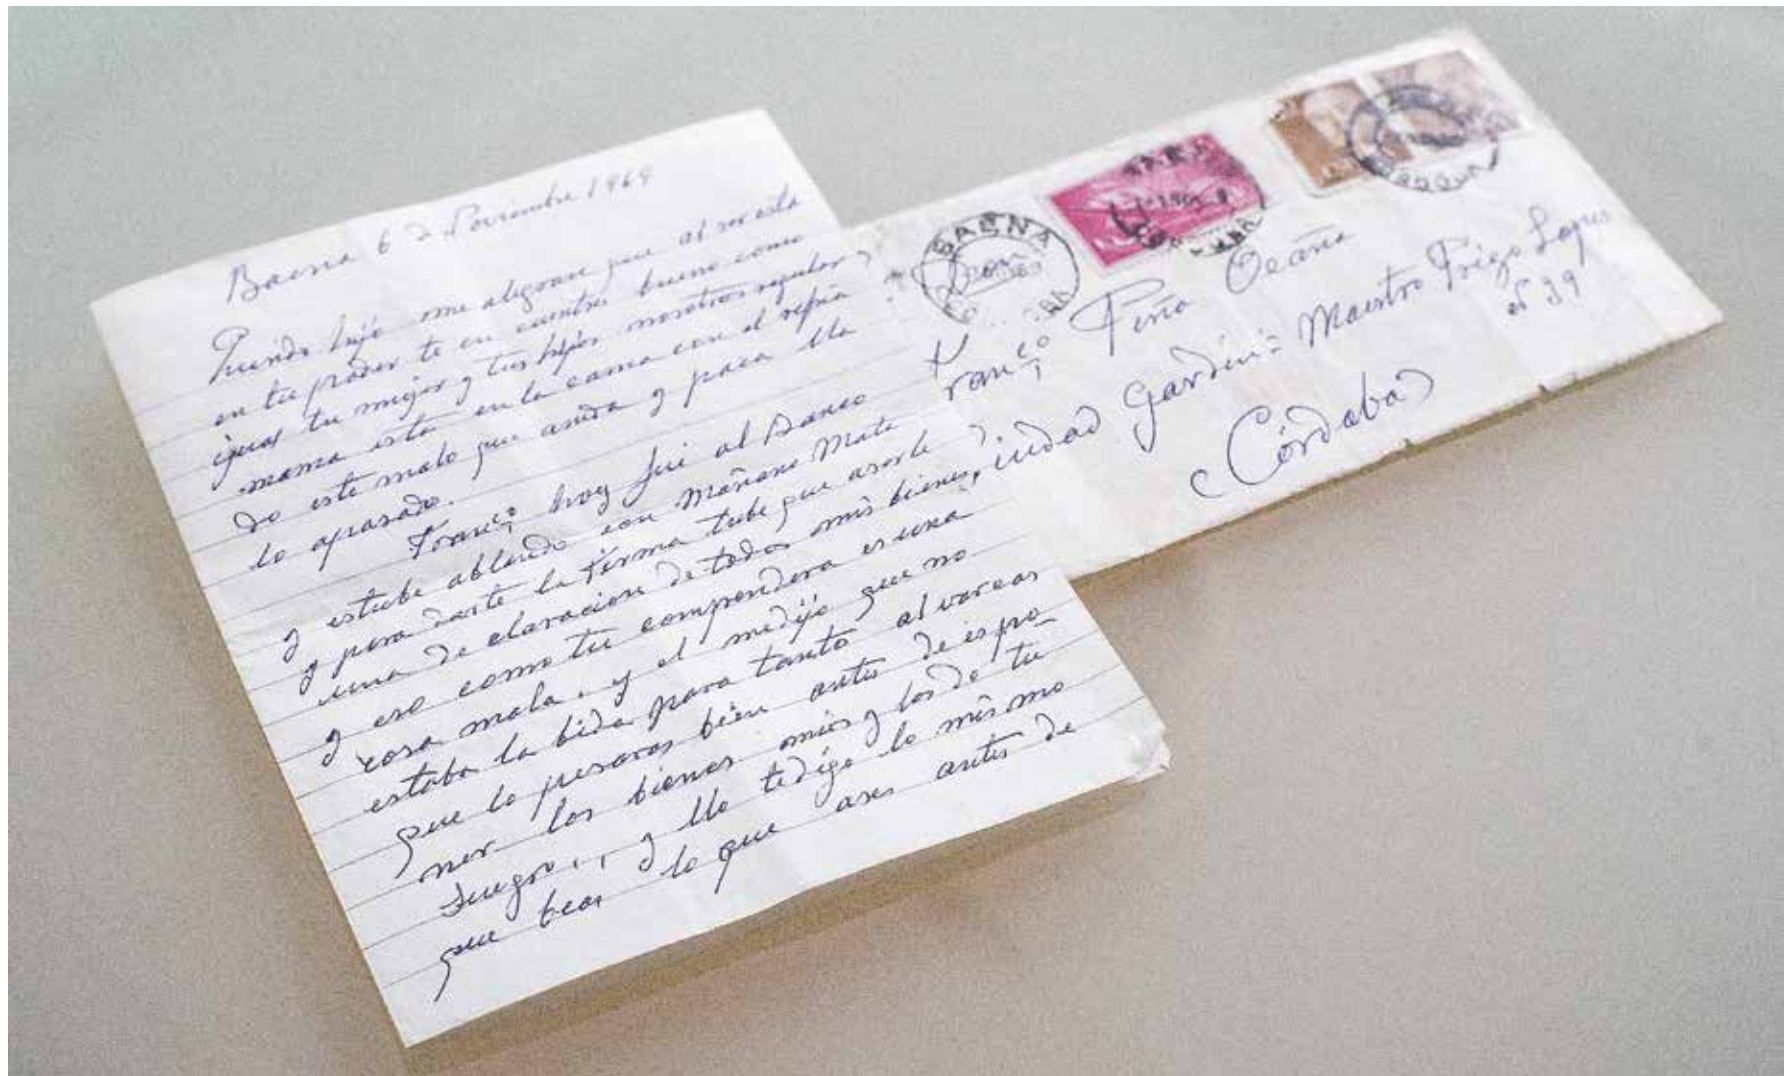 Baena 6 D Noviembre 1969
Querido hijo me alegrare que al ser esta
en tu poder te en cuentres bueno como
igual tu mujer y tus hijos nosotros regular
mama esta en la cama con el refria
do este malo que anda y para lla
lo apasado.
Franco hoy fui al Banco
y estube ablando con Mariano Mate
y para darte la firma tube que aserle
una de claracion de todos mis bienes,
y eso como tu comprendera es una
cosa mala, y el medijo que no
estaba la bida para tanto
que lo pesaras bien antes de espo-
ner los bienes mios y los de tu
suegro,, y llo tedigo lo mismo
que beas lo que ases antes de
BAENA
Don
Franco Peña Ocaña
Ciudad Gardin = Maestro Priego Lopez
nº 39
Córdoba